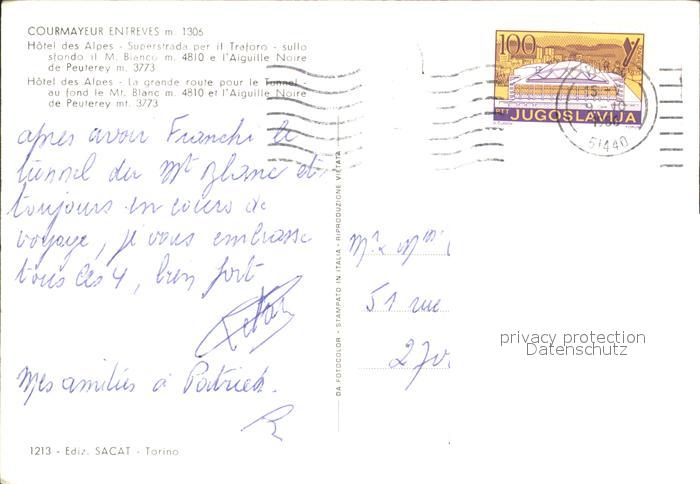 COURMAYEUR ENTREVES m. 1306
Hôtel des Alpes - Superstrada per il Traforo - sullo
sfondo il M. Bianco m. 4810 e l'Aiguille Noire
de Peuterey m. 3773
Hôtel des Alpes - La grande route pour le Tunnel -
au fond le Mt. Blanc m. 4810 et l'Aiguille Noire
de Peuterey mt. 3773
apres avoir Franchi le
tunnel du Mt Blanc et
toujours en cours de
voyage, je vous embrasse
tous les 4, bien fort
Mes amitiés à Patrick.
R
1213 - Ediz. SACAT - Torino
DA FOTOCOLOR - STAMPATO IN ITALIA - RIPRODUZIONE VIETATA
100
PTT JUGOSLAVIJA
15 -
9 - 10
51440
Mr & Mme
51 rue
270
privacy protection
Datenschutz